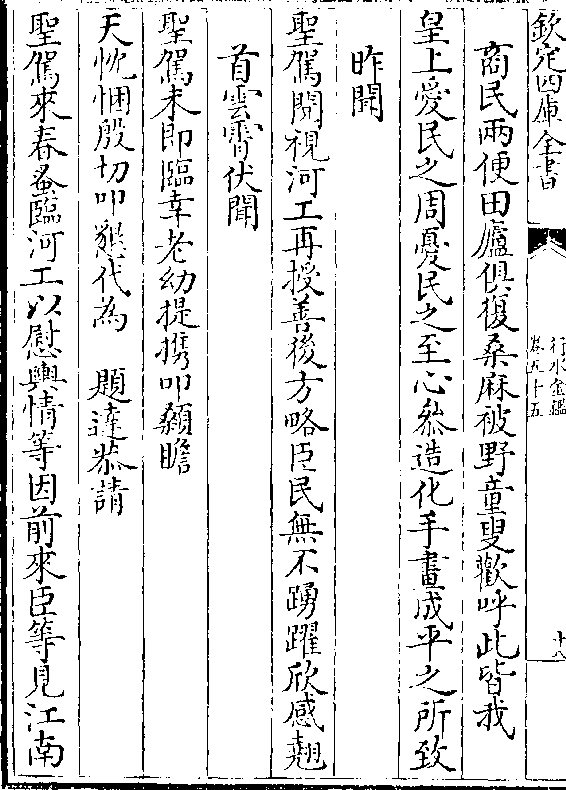 欽定四庫全書
行水金鑑
卷五十五
十八
商民兩便田廬俱復桑麻被野童叟歡呼此皆我
皇上愛民之周憂民之至心參造化手畫成平之所致
昨聞
聖駕閱視河工再授善後方略臣民無不踴躍欣感翹
首雲霄伏聞
聖駕未即臨幸老幼提攜叩顙瞻
天忱悃殷切叩懇代為 題達恭請
聖駕來春蚤臨河工以慰輿情等因前來臣等見江南